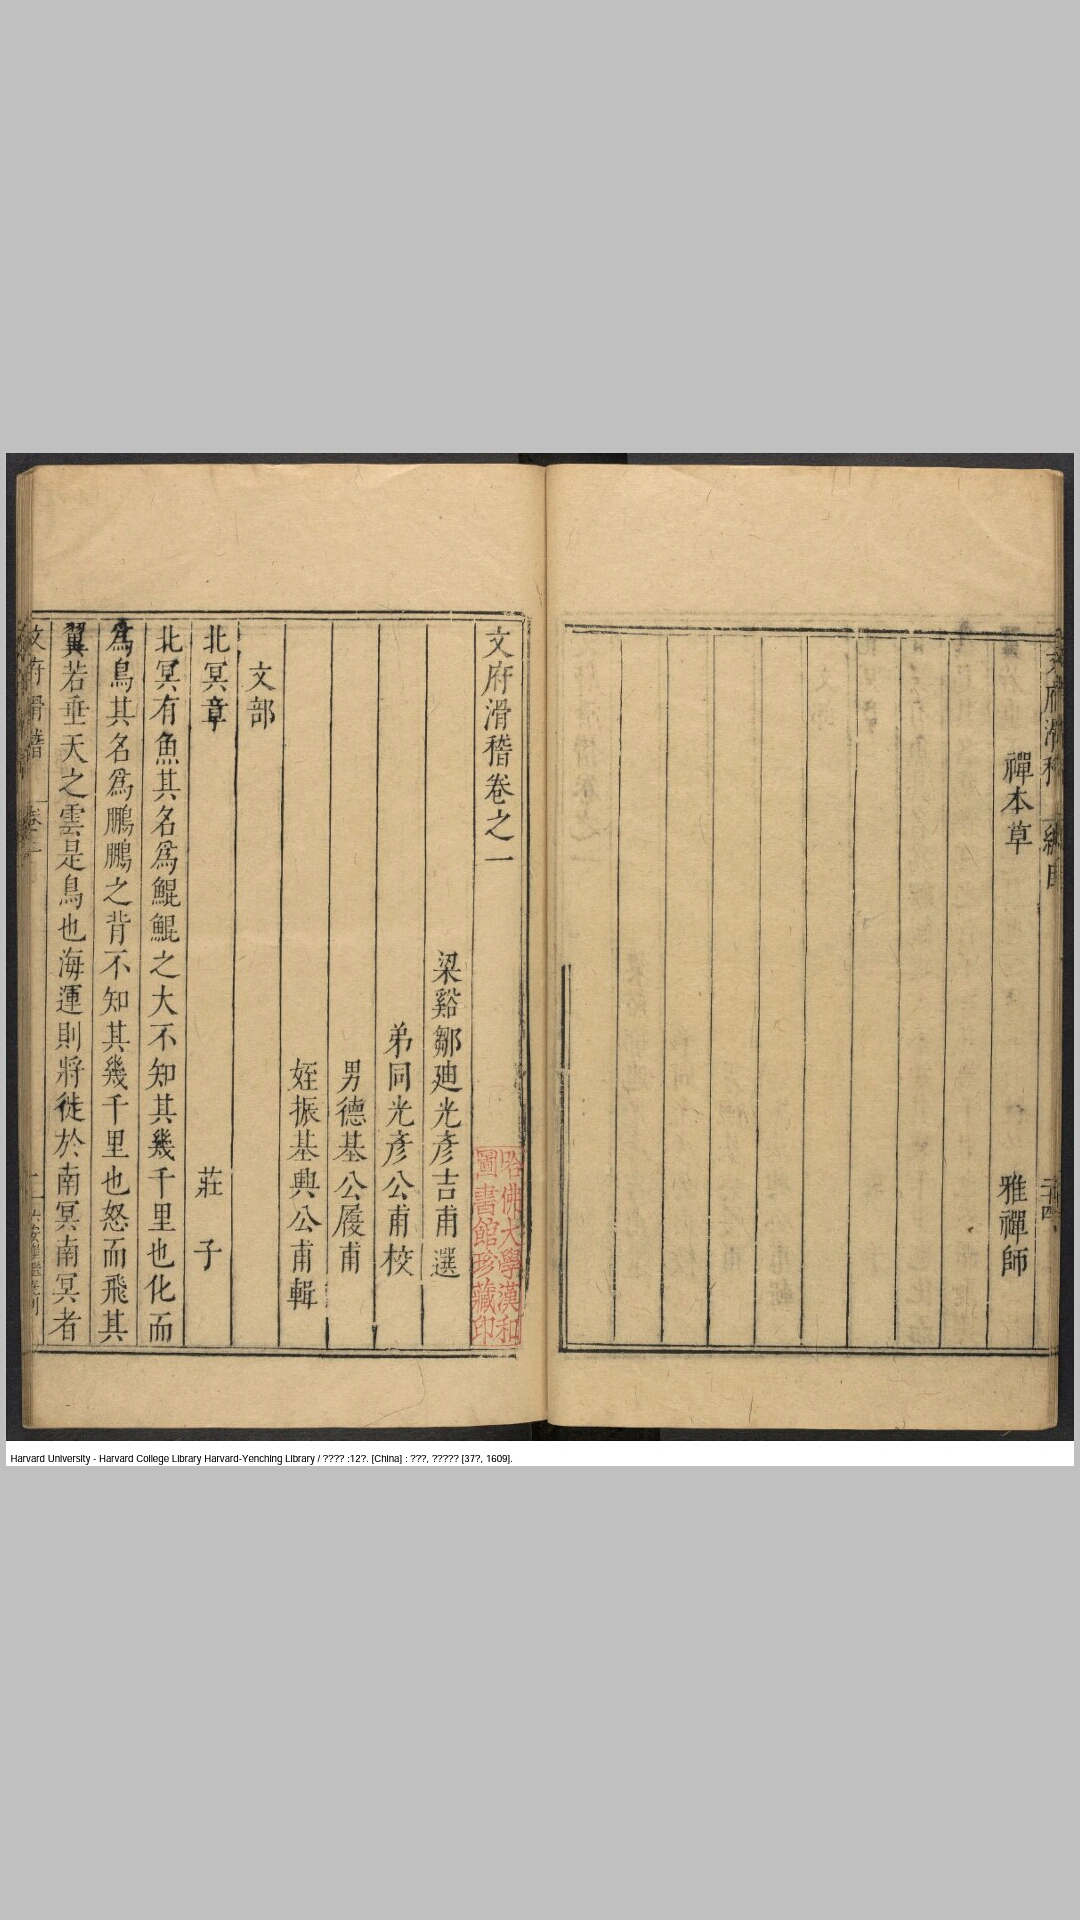 禪本草
雅禪師
文府滑稽卷之一
梁谿鄒迪光彥吉甫選
弟同光彥公甫校
男德基公履甫
姪振基興公甫輯
文部
北冥章
莊子
北冥有魚其名爲鯤鯤之大不知其幾千里也化而
爲鳥其名爲鵬鵬之背不知其幾千里也怒而飛其
翼若垂天之雲是鳥也海運則將徙於南冥南冥者
文府滑稽
哈佛大學漢和
圖書館珍藏印
Harvard University - Harvard College Library Harvard-Yenching Library / ???? :12?. [China] : ???, ????? [37?, 1609].